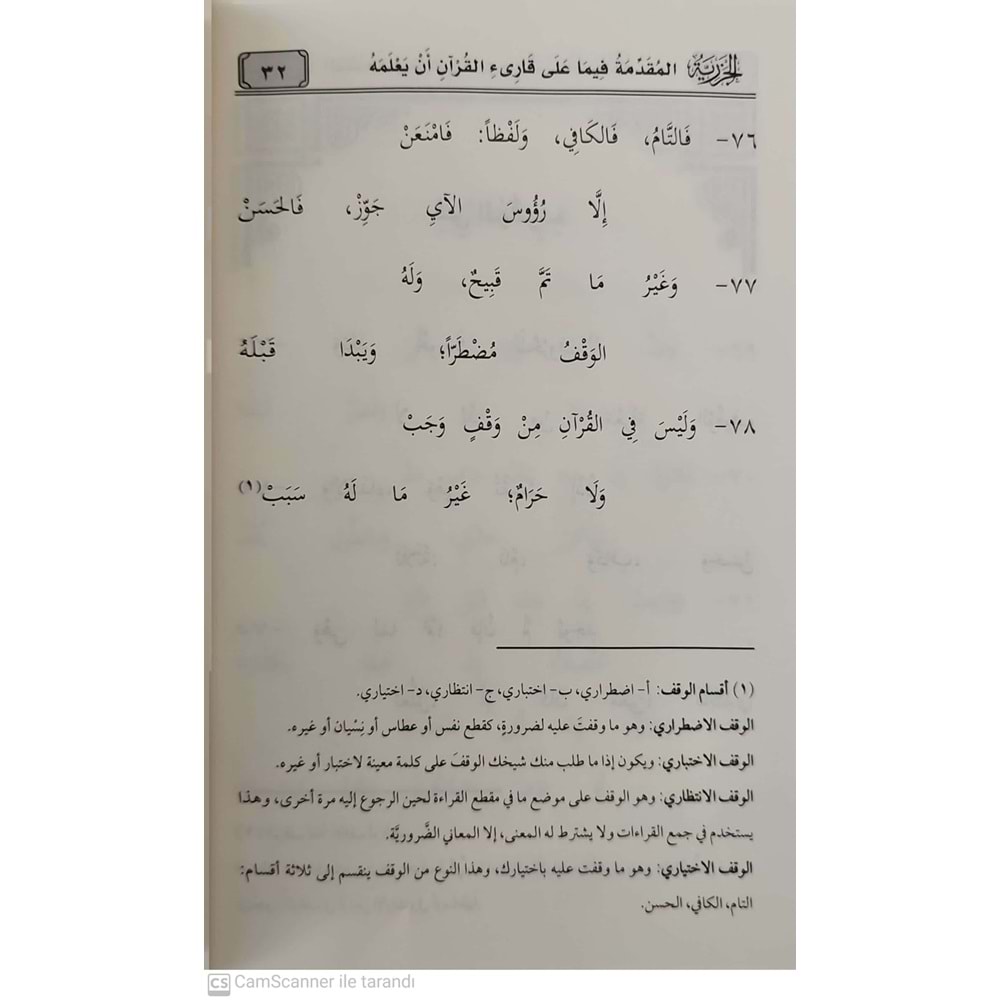 الجزرية المقدمة فيما على قارىء القرآن أن يعلمه ٣٢
٧٦- فَالتَّامُ، فَالكَافِي، وَلَفْظاً: فَامْنَعَنْ
إِلَّا رُؤُوسَ الآيِ جَوِّزْ، فَالحَسَنْ
٧٧- وَغَيْرُ مَا تَمَّ قَبِيحٌ، وَلَهُ
الوَقْفُ مُضْطَرّاً؛ وَيَبْدَا قَبْلَهُ
٧٨- وَلَيْسَ فِي القُرْآنِ مِنْ وَقْفٍ وَجَبْ
وَلَا حَرَامٌ؛ غَيْرُ مَا لَهُ سَبَبْ(١)
(١) أقسام الوقف: أ- اضطراري، ب- اختباري، ج- انتظاري، د- اختياري.
الوقف الاضطراري: وهو ما وقفتَ عليه لضرورةٍ، كقطع نفس أو عطاس أو نِسْيان أو غيره.
الوقف الاختباري: ويكون إذا ما طلب منك شيخك الوقفَ على كلمة معينة لاختبار أو غيره.
الوقف الانتظاري: وهو الوقف على موضع ما في مقطع القراءة لحين الرجوع إليه مرة أخرى، وهذا
يستخدم في جمع القراءات ولا يشترط له المعنى، إلا المعاني الضَّروريَّة.
الوقف الاختياري: وهو ما وقفت عليه باختيارك، وهذا النوع من الوقف ينقسم إلى ثلاثة أقسام:
التام، الكافي، الحسن.
CS CamScanner ile tarandı